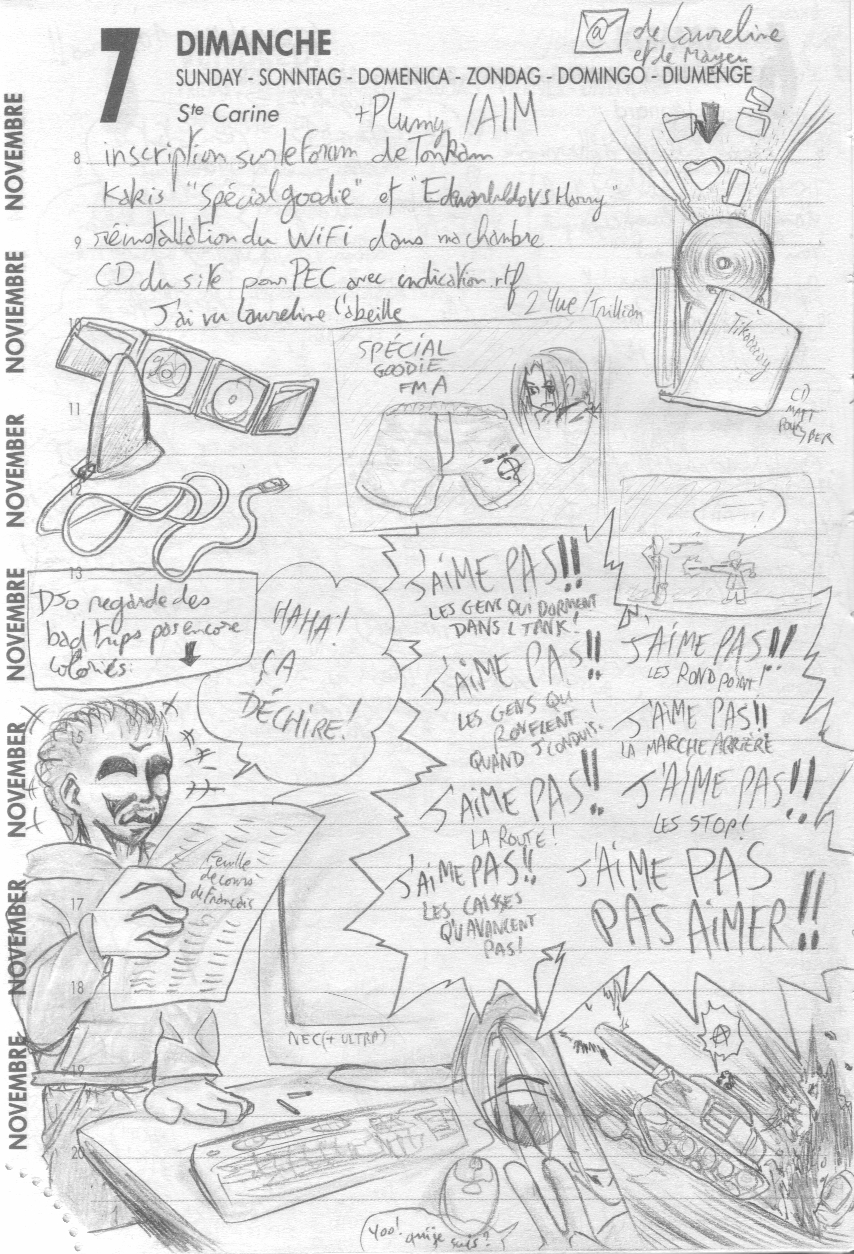 7
DIMANCHE
SUNDAY - SONNTAG - DOMENICA - ZONDAG - DOMINGO - DIUMENGE
Ste Carine
@ de Laureline
et de Mayeu
+Plumy/AIM
8 inscription sur le forum de Tonkam
Kakis "Spécial goodie" et "Harry"
9 réinstallation du WiFi dans ma chambre
CD du site pour PEC avec indication.rtf
J'ai vu Laureline l'abeille
2 Yue/Trillian
10
11
12
13
15
17
18
19
20
SPÉCIAL
GOODIE
FMA
CD
MATT
POUR
CYBER
DJo regarde des
bad trips pas encore
coloriés
HAHA!
ÇA
DÉCHIRE!
Feuille
de cours
de Français
NEC(+ ULTRA)
J'AIME PAS!!
LES GENS QUI DORMENT
DANS L TANK!
J'AIME PAS!!
LES GENS QUI
RONFLENT
QUAND J'CONDUIS.
J'AIME PAS!!
LA ROUTE!
J'AIME PAS!!
LES CAISSES
QU'AVANCENT
PAS!
J'AIME PAS!!
LES ROND POINT!
J'AIME PAS!!
LA MARCHE ARRIÈRE
J'AIME PAS!!
LES STOP!
J'AIME PAS
PAS AIMER!!
Yoo! qui je suis?
NOVEMBRE
NOVIEMBRE
NOVEMBER
NOVEMBER
NOVEMBER
NOVEMBRE
NOVEMBRE